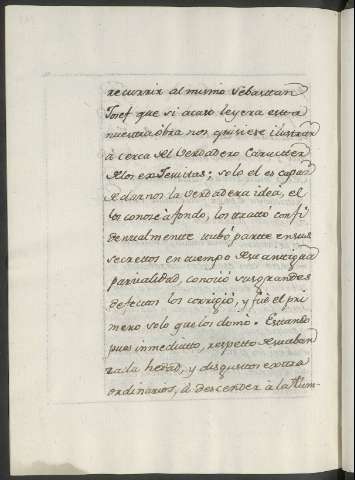 recurrir al mismo Sebastian
Josef que si acaso leyera esta
nuestra obra nos quisiese ilustrar
à cerca del verdadero Caracter
de los ex Jesuitas; solo el es capaz
de darnos la verdadera idea, el
los conoce à fondo, los trattò confi
denzialmente tubò parte en sus
secretos en tiempo de su antigua
parcialidad, conociò sus grandes
defectos los corrigiò, y fuè el pri
mero solo que los domò. Estando
pues inmediato, respecto de su aban
zada hedad, y disgustos extra
ordinarios, à descender à la Tum-